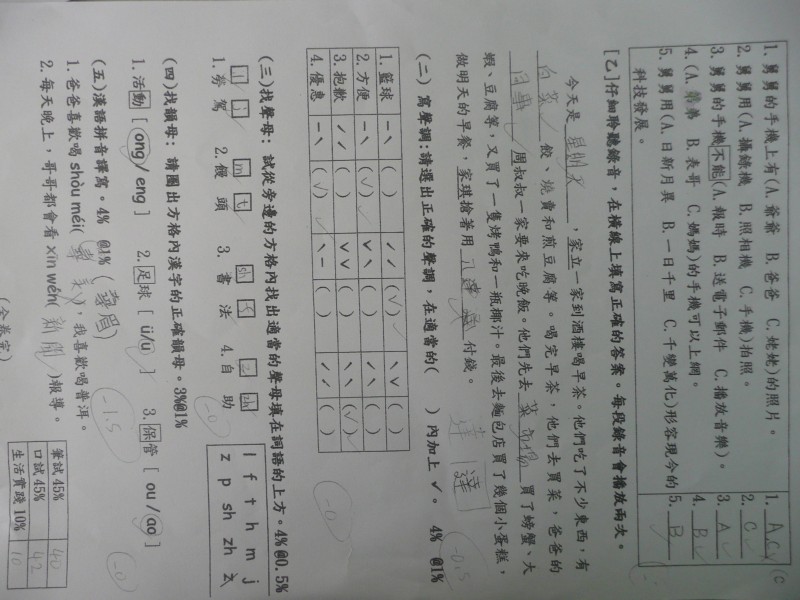 1. 舅舅的手機上有(A. 爺爺 B. 爸爸 C. 姥姥)的照片。 1. A
2. 舅舅用(A. 攝錄機 B. 照相機 C. 手機)拍照。 2. C
3. 舅舅的手機不能(A. 報時 B. 送電子郵件 C. 播放音樂)。 3. A
4. (A. 弟弟 B. 表哥 C. 媽媽)的手機可以上網。 4. B
5. 舅舅用(A. 日新月異 B. 一日千里 C. 千變萬化)形容現今的 5. B
科技發展。
[乙]仔細聆聽錄音,在橫線上填寫正確的答案。每段錄音會播放兩次。
今天是星期天,家立一家到酒樓喝早茶。他們吃了不少東西,有
白菜餃、燒賣和煎豆腐等。喝完早茶,他們去買菜,爸爸的
同事周叔叔一家要來吃晚飯。他們先去菜市場買了螃蟹、大
蝦、豆腐等,又買了一隻烤鴨和一瓶椰汁。最後去麵包店買了幾個小蛋糕,
做明天的早餐,家琪搶著用八達通付錢。
達
-0.5
(二) 寫聲調:請選出正確的聲調,在適當的( )內加上✓。 4% @1%
1. 籃球 ( ) (✓) ( )
2. 方便 (✓) ( ) ( )
3. 抱歉 ( ) ( ) (✓)
4. 優惠 (✓) ( ) ( )
-0
(三)找聲母:試從旁邊的方格內找出適當的聲母填在詞語的上方。4%@0.5%
l j m t sh f z zh
1. 勞駕 2. 饅頭 3. 書法 4. 自助
l f t h m j
z p sh zh
-0
(四)找韻母:請圈出方格內漢字的正確韻母。3%@1%
1. 活動 [ ong / eng ] 2. 足球 [ ü/u ] 3. 保管 [ ou / ao ]
-0
(五)漢語拼音譯寫。4% @1%
1. 爸爸喜歡喝 shòu méi( ),我喜歡喝普洱。
壽眉
-1.5
2. 每天晚上,哥哥都會看 xīn wén( 新聞 )報導。
(全卷完)
筆試 45% 40
口試 45% 42
生活實踐 10% 10